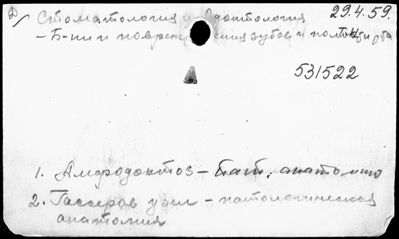 Стоматология и одонтология 29.4.59.
– Б-ни и повреждения зубов и полости рта
531522
1. Амфодонтоз – Пат. анатомия
2. Гассеров узел – патологическая
анатомия